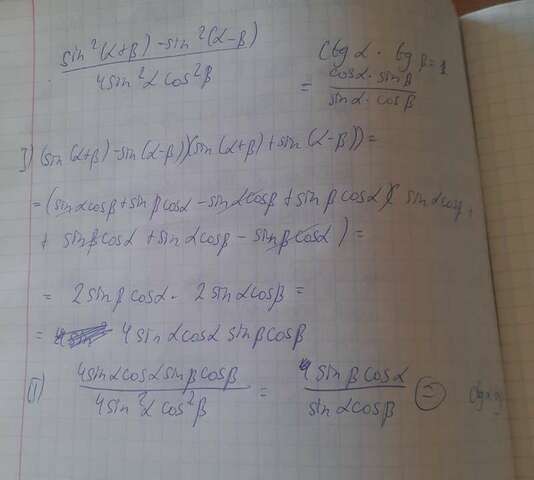 sin²(α+β) - sin²(α-β)
4sin²α cos²β
Ctg α · tg β =
= cosα · sinβ
sinα · cosβ
I) (sin(α+β) - sin(α-β))(sin(α+β) + sin(α-β)) =
= (sinα cosβ + sinβ cosα - sinα cosβ + sinβ cosα)( sinα cosβ +
+ sinβ cosα + sinα cosβ - sinβ cosα ) =
= 2 sinβ cosα · 2 sinα cosβ =
= 4 sinα cosα sinβ cosβ
II) 4sinα cosα sinβ cosβ = sinβ cosα =
4sin²α cos²β sinα cosβ